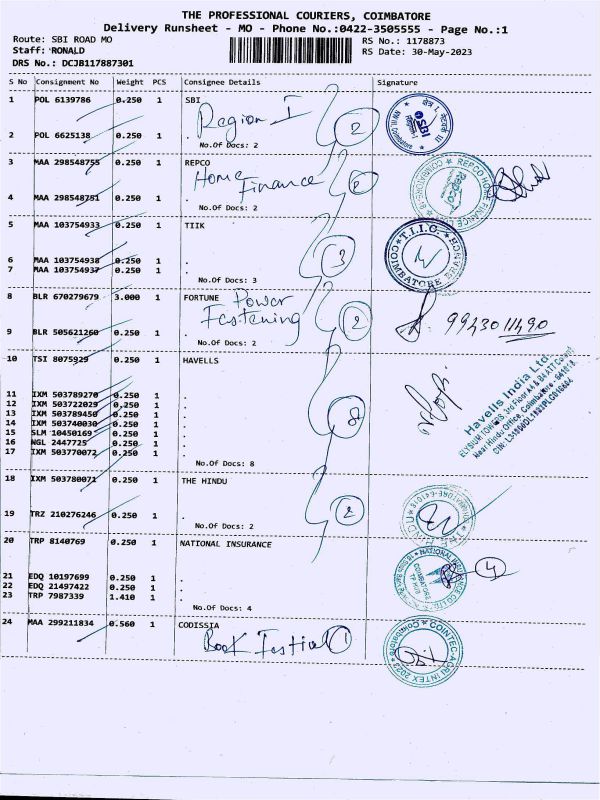 THE PROFESSIONAL COURIERS, COIMBATORE
Delivery Runsheet - MO - Phone No.:0422-3505555 - Page No.:1
Route: SBI ROAD MO
RS No.: 1178873
Staff: RONALD
RS Date: 30-May-2023
DRS No.: DCJB117887301
S No Consignment No Weight PCS Consignee Details Signature
1 POL 6139786 0.250 1 SBI
Region I
2 POL 6625138 0.250 1 .
No.Of Docs: 2
2
SBI
3 MAA 298548755 0.250 1 REPCO
Home Finance
4 MAA 298548751 0.250 1 .
No.Of Docs: 2
2
REPCO HOME FINANCE
5 MAA 103754933 0.250 1 TIIK
6 MAA 103754938 0.250 1 .
7 MAA 103754937 0.250 1 .
No.Of Docs: 3
3
T.I.I.C.
COIMBATORE BRANCH
8 BLR 670279679 3.000 1 FORTUNE Power
Fastening
9 BLR 505621260 0.250 1 .
No.Of Docs: 2
2
9943011490
10 TSI 8075929 0.250 1 HAVELLS
11 IXM 503789270 0.250 1 .
12 IXM 503722029 0.250 1 .
13 IXM 503789450 0.250 1 .
14 IXM 503740030 0.250 1 .
15 SLM 10450169 0.250 1 .
16 NGL 2447725 0.250 1 .
17 IXM 503770072 0.250 1 .
No.Of Docs: 8
8
Havells India Ltd
18 IXM 503780071 0.250 1 THE HINDU
19 TRZ 210276246 0.250 1 .
No.Of Docs: 2
2
20 TRP 8140769 0.250 1 NATIONAL INSURANCE
21 EDQ 10197699 0.250 1 .
22 EDQ 21497422 0.250 1 .
23 TRP 7987339 1.410 1 .
No.Of Docs: 4
4
24 MAA 299211834 0.560 1 CODISSIA
Book Festival 1
COINTEC-AGRI INTEX 2023
Coimbatore